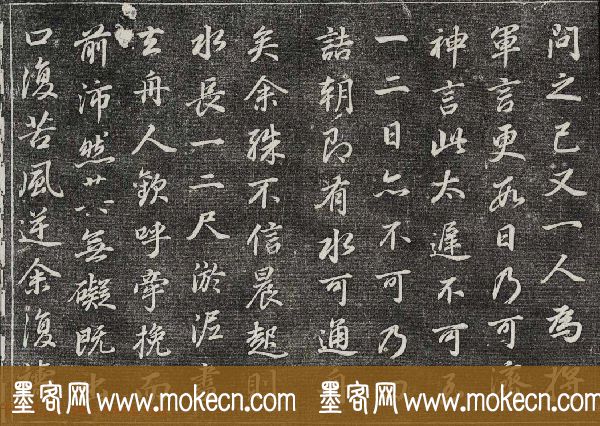 問之已又一人為
軍言更數日乃可濟
神言此太遲不可
一二日亦不可乃
詰朝即有水可通
矣余殊不信晨起則
水長一二尺淤泥
士舟人欽呼牽挽而
前沛然無礙既
口復苦風逆余復
墨客网 www.mokecn.com 墨客网 www.mokecn.com